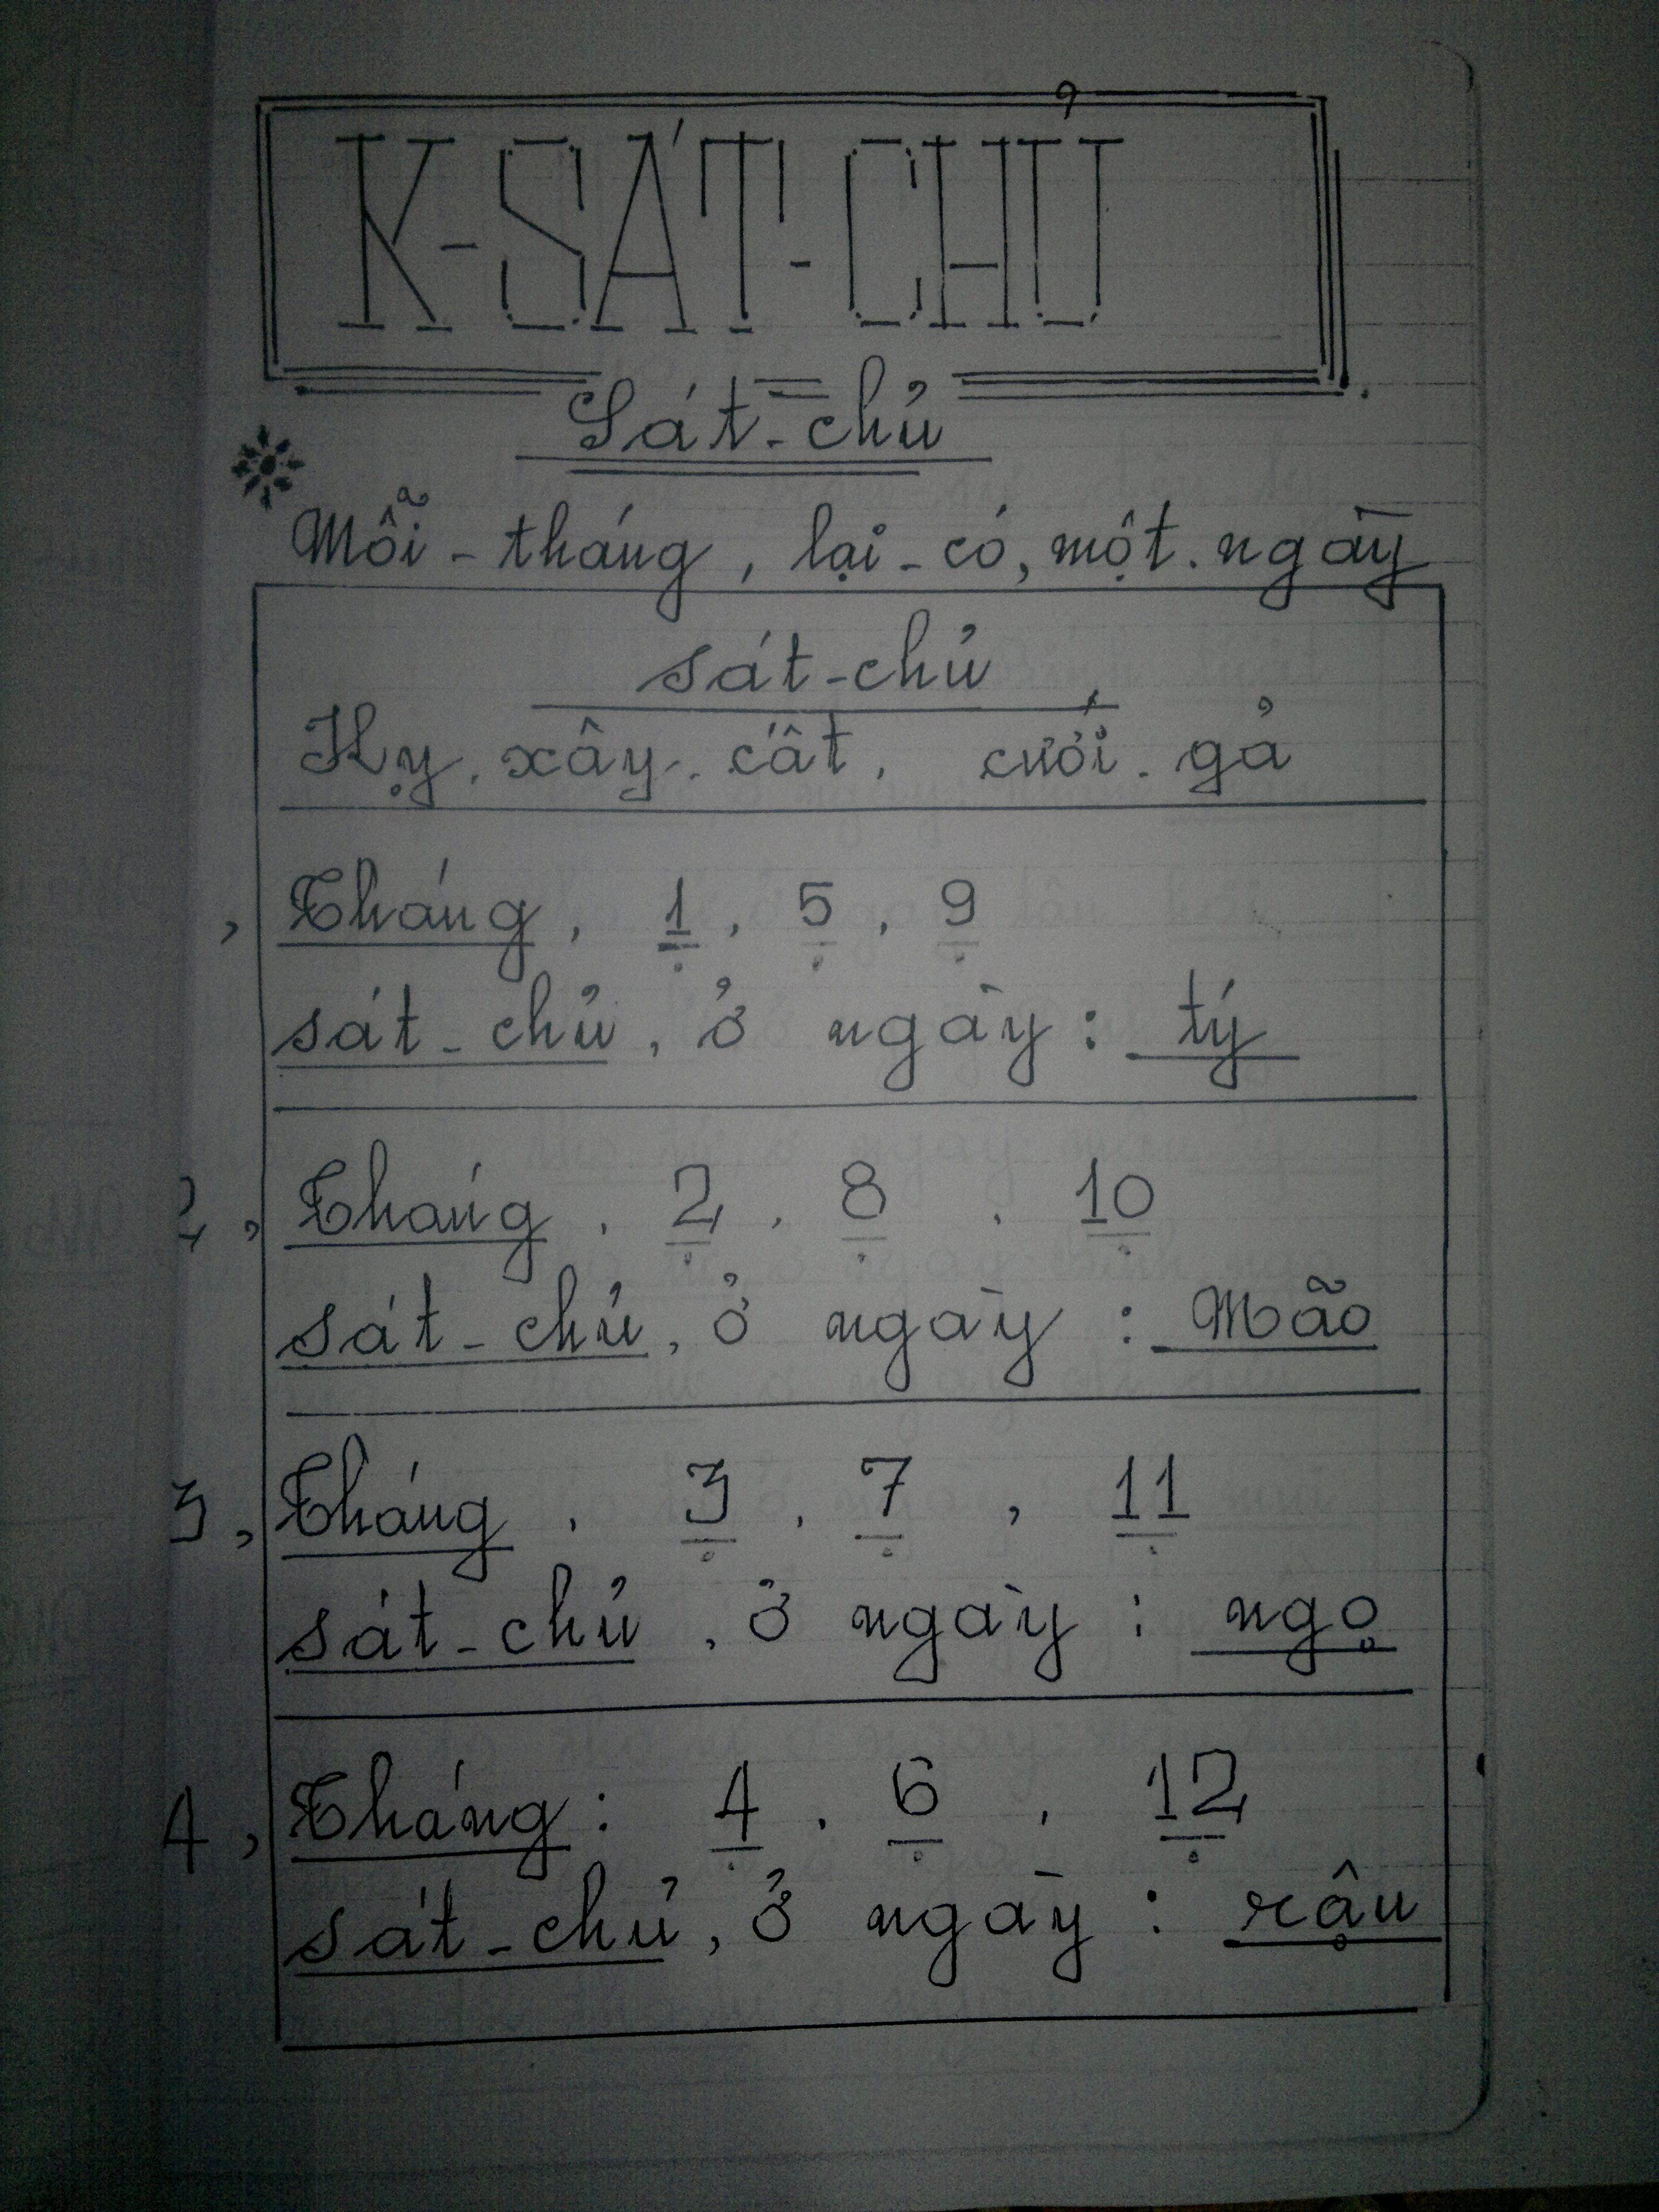 K-SÁT-CHỦ
Sát-chủ
Mỗi-tháng, lại-có, một. ngày
sát-chủ
Kỵ. xây. cất, cưới. gả
, Tháng, 1, 5, 9
sát-chủ, ở ngày: tý
2, Tháng. 2, 8. 10
sát-chủ, ở ngày: Mão
3, Tháng. 3. 7, 11
sát-chủ, ở ngày: ngọ
4, Tháng: 4. 6. 12
sát-chủ, ở ngày: rậu